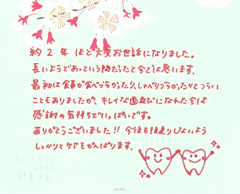 約2年ほど大変お世話になりました。
長いようであっという間だったと今では思います。
最初は食事が食べづらかったり、しゃべりづらかったりと
こともありましたが、キレイな歯並びになれた今は
感謝の気持ちでいっぱいです。
ありがとうございました!! 今後も後戻りしないよう
しっかりとケアをがんばります。